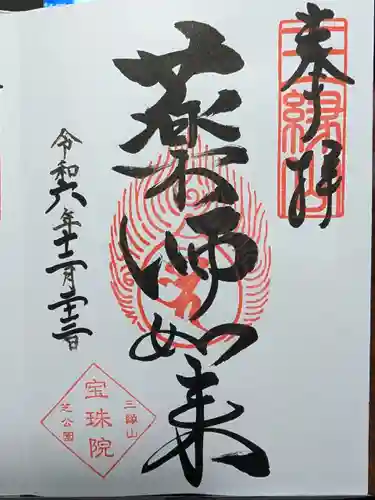 奉拝
薬師如来
令和六年十二月二十三日
三縁山
宝珠院
芝公園